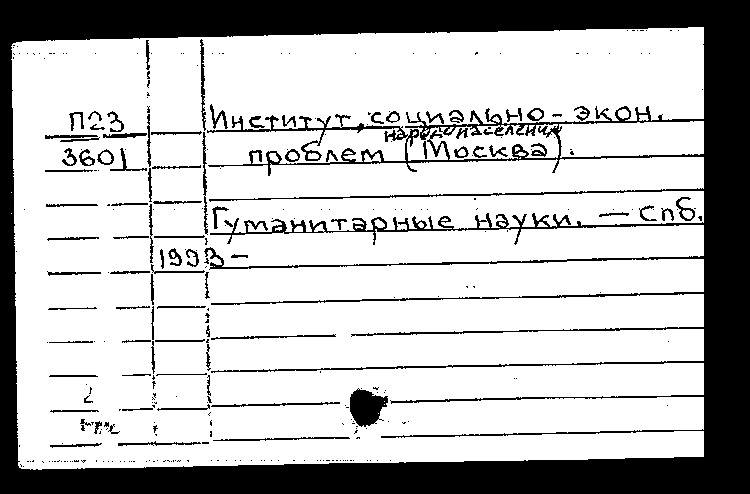 П23
3601
Институт социально-экон.
народонаселения
проблем (Москва).
Гуманитарные науки. — Спб.
1993-
2